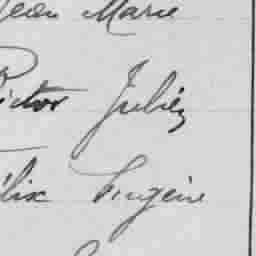 Jean Marie
Victor Julien
Félix Eugène